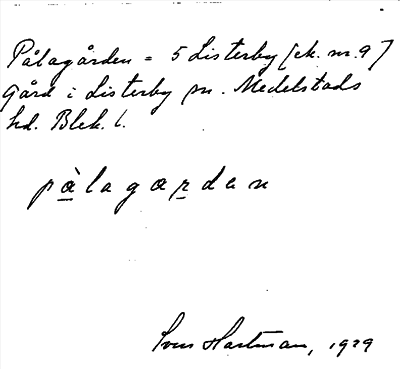 Pålagården = 5 Listerby [ek. nr. 9]
Gård i Listerby sn. Medelstads
hd. Blek. l.
pàlagarden
Sven Hartman, 1929